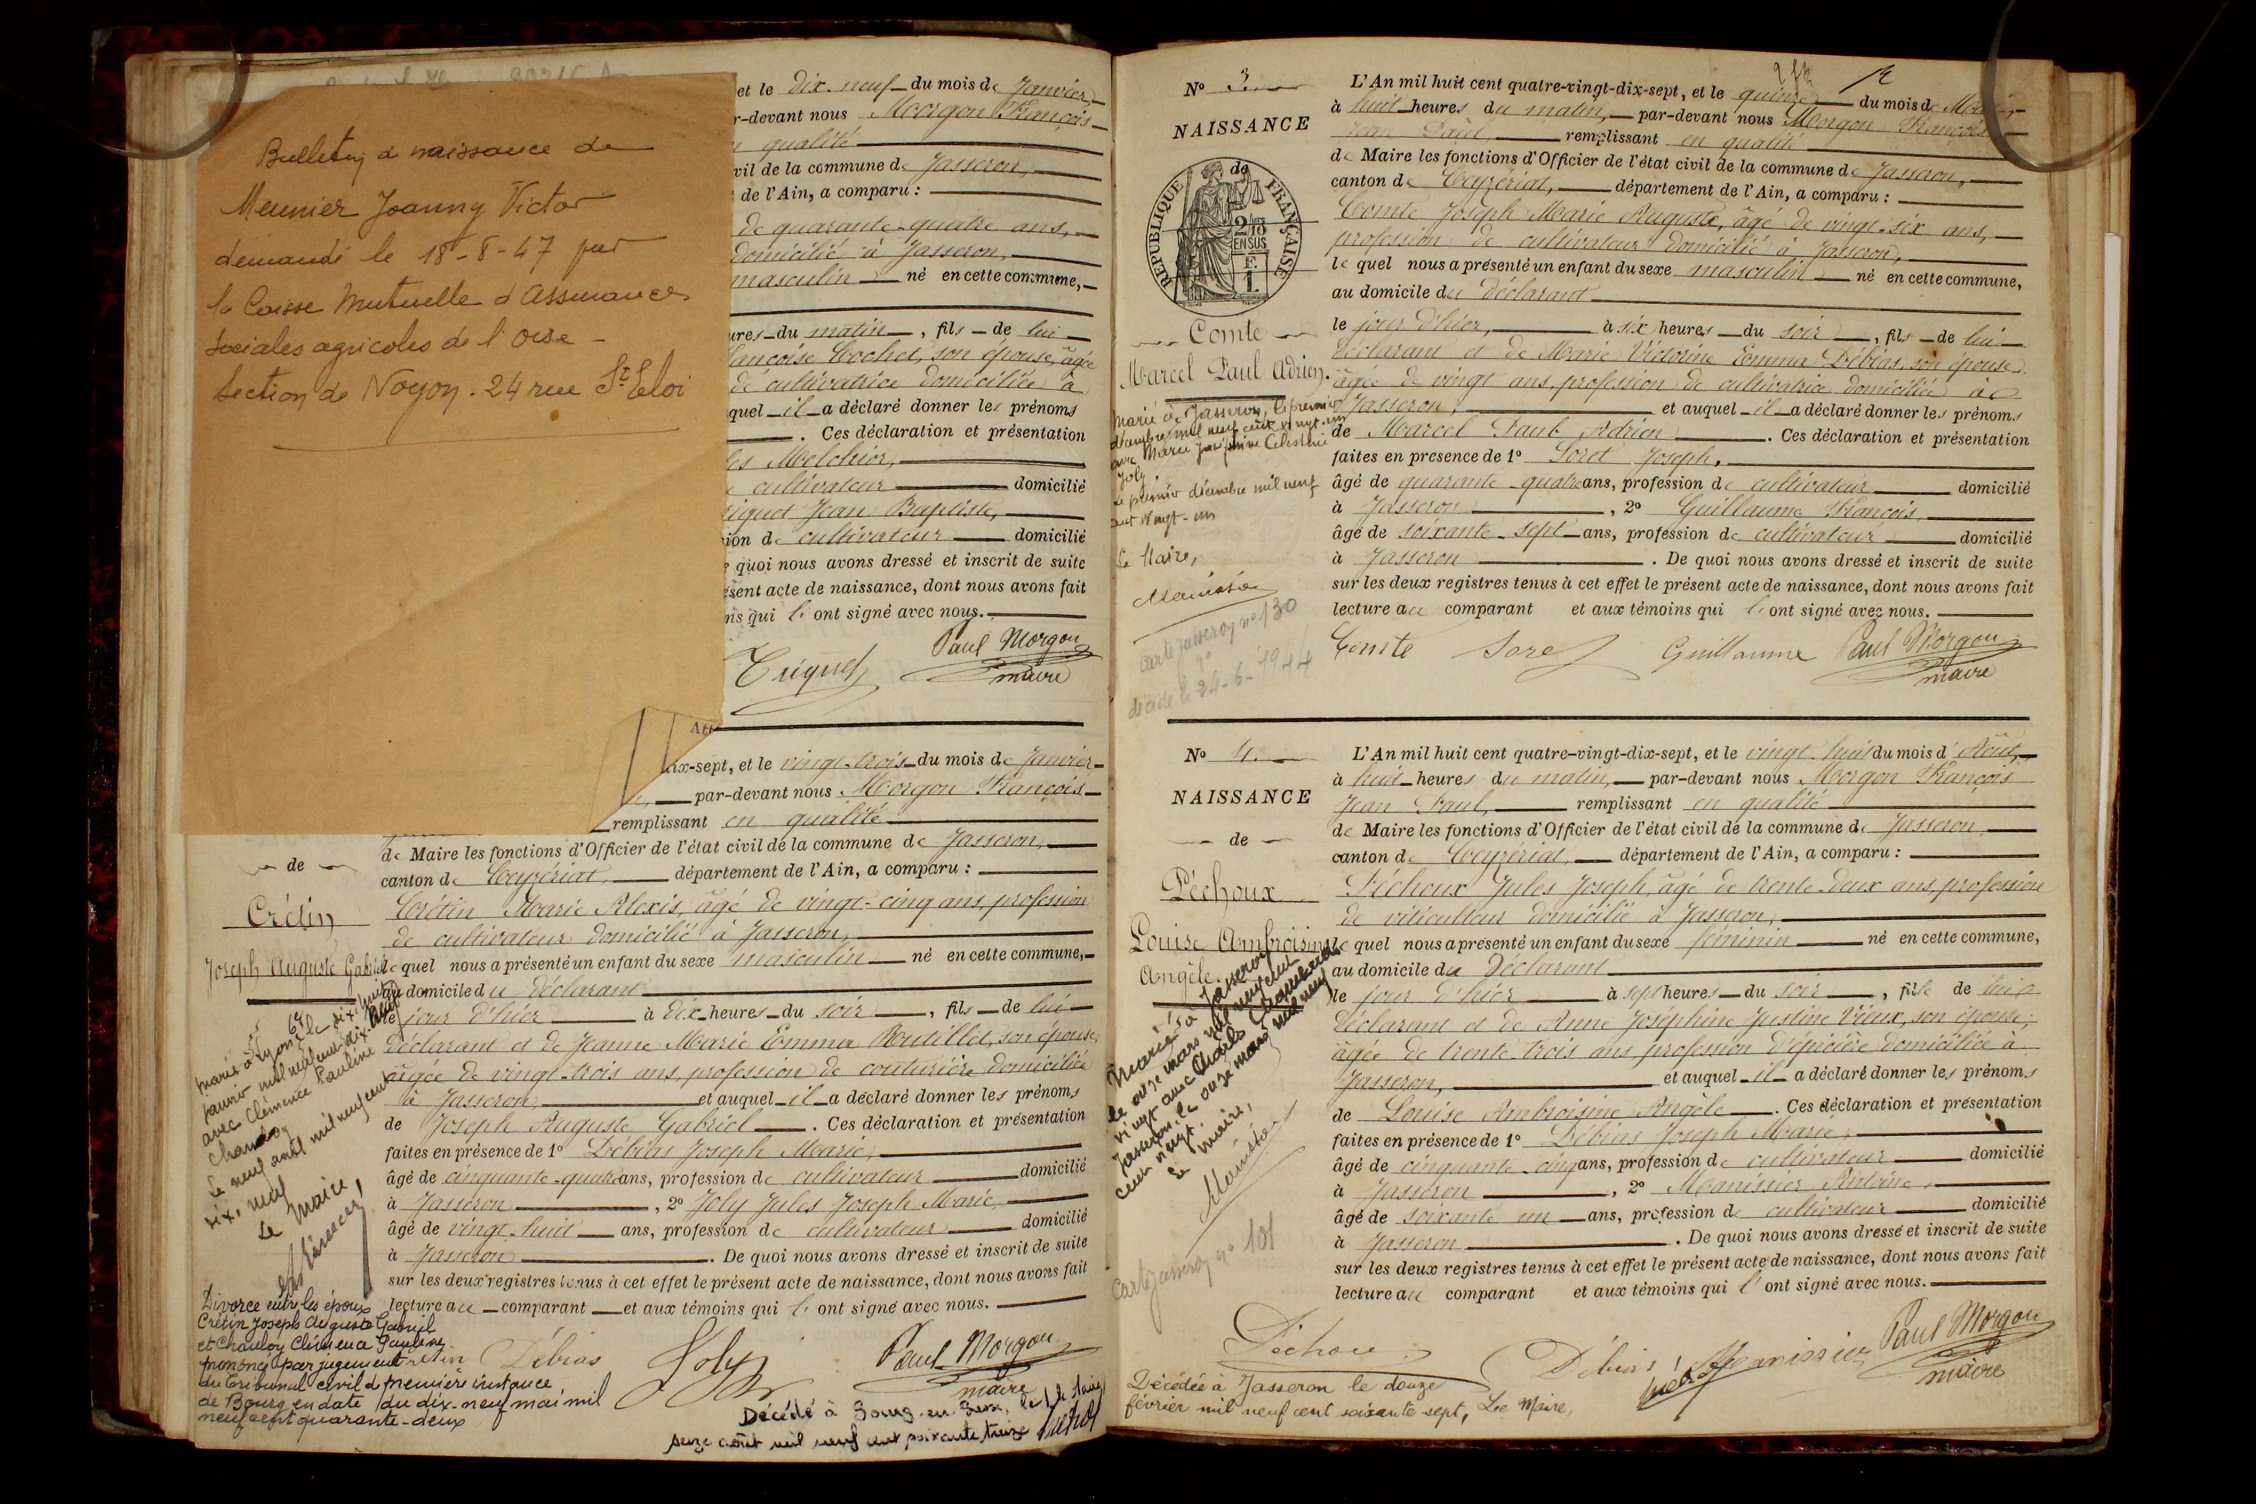 Bulletin de naissance de
Meunier Joanny Victor
demandé le 18-8-47 par
la Caisse Mutuelle d'Assurances
Sociales agricoles de l'Oise -
Section de Noyon. 24 rue St Eloi
et le dix-neuf du mois de Janvier,
r-devant nous Morgon François
qualité
vil de la commune de Jasseron,
de l'Ain, a comparu :
de quarante-quatre ans,
domicilié à Jasseron,
masculin né en cette commune,
ures du matin, fils de lui
ançoise Cochet, son épouse, âgée
de cultivatrice domiciliée à
quel il a déclaré donner les prénoms
. Ces déclaration et présentation
es Melchior,
cultivateur domicilié
iquet Jean Baptiste,
ion de cultivateur domicilié
quoi nous avons dressé et inscrit de suite
ésent acte de naissance, dont nous avons fait
ns qui l' ont signé avec nous.
Paul Morgon
maire
dix-sept, et le vingt-trois du mois de Janvier
par-devant nous Morgon François
remplissant en qualité
de Maire les fonctions d'Officier de l'état civil de la commune de Jasseron,
canton de Ceyzériat, département de l'Ain, a comparu :
Crétin Marie Alexis, âgé de vingt-cinq ans, profession
de cultivateur domicilié à Jasseron,
le quel nous a présenté un enfant du sexe masculin né en cette commune,
au domicile du déclarant
le jour d'hier à dix heures du soir, fils de lui
déclarant et de Jeanne Marie Emma Boutillet, son épouse,
âgée de vingt-trois ans, profession de couturière domiciliée
à Jasseron, et auquel il a déclaré donner les prénoms
de Joseph Auguste Gabriel . Ces déclaration et présentation
faites en présence de 1° Débias Joseph Marie,
âgé de cinquante-quatre ans, profession de cultivateur domicilié
à Jasseron, 2° Joly Jules Joseph Marie,
âgé de vingt-huit ans, profession de cultivateur domicilié
à Jasseron . De quoi nous avons dressé et inscrit de suite
sur les deux registres tenus à cet effet le présent acte de naissance, dont nous avons fait
lecture au comparant et aux témoins qui l' ont signé avec nous.
Débias Joly Paul Morgon
maire
de
Crétin
Joseph Auguste Gabriel
marié à
le dix huit
janvier mil neuf cent dix neuf
avec Clémence Pauline
Le neuf août mil neuf cent
dix neuf
Le Maire,
Divorce entre les époux
Crétin Joseph Auguste Gabriel
et Clémence Pauline
prononcé par jugement
du Tribunal civil de première instance
de Bourg en date du dix-neuf mai mil
neuf cent quarante-deux
Décédé à Bourg-en-Bresse, le
seize août mil neuf cent soixante treize
N° 3
NAISSANCE
de
RÉPUBLIQUE FRANÇAISE
2/10 EN SUS
F.
1.
Comte
Marcel Paul Adrien.
marié à Jasseron, le premier
décembre mil neuf cent vingt-un
avec Marie Joséphine Célestine
Joly
Le premier décembre mil neuf
cent vingt-un
Le Maire,
Carte Jasseron n° 130
décédé le 24-6-1944
L'An mil huit cent quatre-vingt-dix-sept, et le quinze du mois de Mars,
à huit heures du matin, par-devant nous Morgon François
Jean Paul, remplissant en qualité
de Maire les fonctions d'Officier de l'état civil de la commune de Jasseron,
canton de Ceyzériat, département de l'Ain, a comparu :
Comte Joseph Marie Auguste, âgé de vingt-six ans,
profession de cultivateur domicilié à Jasseron,
le quel nous a présenté un enfant du sexe masculin né en cette commune,
au domicile du déclarant
le jour d'hier, à six heures du soir, fils de lui
déclarant et de Marie Victorine Emma Débias, son épouse
âgée de vingt ans, profession de cultivatrice domiciliée à
Jasseron, et auquel il a déclaré donner les prénoms
de Marcel Paul Adrien . Ces déclaration et présentation
faites en présence de 1° Soret Joseph,
âgé de quarante-quatre ans, profession de cultivateur domicilié
à Jasseron, 2° Guillaume François,
âgé de soixante-sept ans, profession de cultivateur domicilié
à Jasseron . De quoi nous avons dressé et inscrit de suite
sur les deux registres tenus à cet effet le présent acte de naissance, dont nous avons fait
lecture au comparant et aux témoins qui l' ont signé avec nous.
Comte Soret Guillaume Paul Morgon
maire
N° 4
NAISSANCE
de
Péchoux
Louise Ambroisine
Angèle.
Mariée à Jasseron
le onze mars mil neuf cent
vingt avec Charles
Jasseron. Le onze mars mil neuf
cent vingt.
Le Maire,
Carte Jasseron n° 101
L'An mil huit cent quatre-vingt-dix-sept, et le vingt-huit du mois d'Août,
à huit heures du matin, par-devant nous Morgon François
Jean Paul, remplissant en qualité
de Maire les fonctions d'Officier de l'état civil de la commune de Jasseron,
canton de Ceyzériat, département de l'Ain, a comparu :
Péchoux Jules Joseph, âgé de trente-deux ans, profession
de viticulteur domicilié à Jasseron,
le quel nous a présenté un enfant du sexe féminin né en cette commune,
au domicile du Déclarant
le jour d'hier à sept heures du soir, fille de lui
déclarant et de Anne Joséphine Justine Vieux, son épouse,
âgée de trente-trois ans, profession d'épicière domiciliée à
Jasseron, et auquel il a déclaré donner les prénoms
de Louise Ambroisine Angèle . Ces déclaration et présentation
faites en présence de 1° Débias Joseph Marie,
âgé de cinquante-cinq ans, profession de cultivateur domicilié
à Jasseron, 2° Manissier Antoine,
âgé de soixante un ans, profession de cultivateur domicilié
à Jasseron . De quoi nous avons dressé et inscrit de suite
sur les deux registres tenus à cet effet le présent acte de naissance, dont nous avons fait
lecture au comparant et aux témoins qui l' ont signé avec nous.
Péchoux Débias Manissier Paul Morgon
maire
Décédée à Jasseron le douze
février mil neuf cent soixante sept, Le Maire,